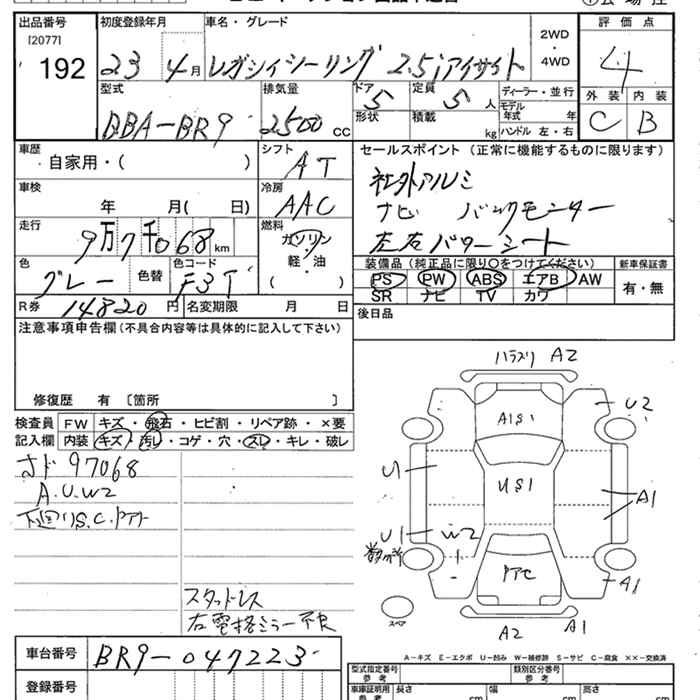 出品番号
[2077]
192
初度登録年月
23 4 月
車名・グレード
レガシィツーリング 2.5iアイサイト
2WD
・
4WD
評価点
4
外装 内装
C B
型式
BBA-BR9
排気量
2500 CC
ドア
5
定員
5 人
形状
積載
kg
ディーラー・並行
モデル
年式 年
ハンドル 左・右
車歴
自家用・( )
シフト
AT
車検
年 月( 日)
冷房
AAC
走行
9万7千068 km
燃料
ガソリン
軽・油
( )
色
グレー
色替
色コード
F3T
R券 14820 円
名変期限 月 日
セールスポイント (正常に機能するものに限ります)
社外アルミ
ナビ バックモニター
左右パワーシート
装備品(純正品に限り○をつけてください)
PS PW ABS エアB AW
SR ナビ TV カワ
新車保証書
有・無
後日品
注意事項申告欄(不具合内容等は具体的に記入して下さい)
修復歴 有 〔箇所 〕
検査員
記入欄
FW キズ・飛石・ヒビ割・リペア跡・×要
内装 キズ・汚し・コゲ・穴・スレ・キレ・破し
97068
A.U.W2
下廻りS.C.
スタットレス
右電格ミラー不良
A2
A1S1
U2
U1
US1
A1
U1
W2
1
PTC
A1
A2
A1
スペア
A-キズ E-エクボ U-凹み W-補修跡 S-サビ C-腐食 ××-交換済
車台番号
BR9-047223
登録番号
型式指定番号
参考
類別区分番号
参考
車庫証明用
参考
長さ
cm
幅
cm
高さ
cm